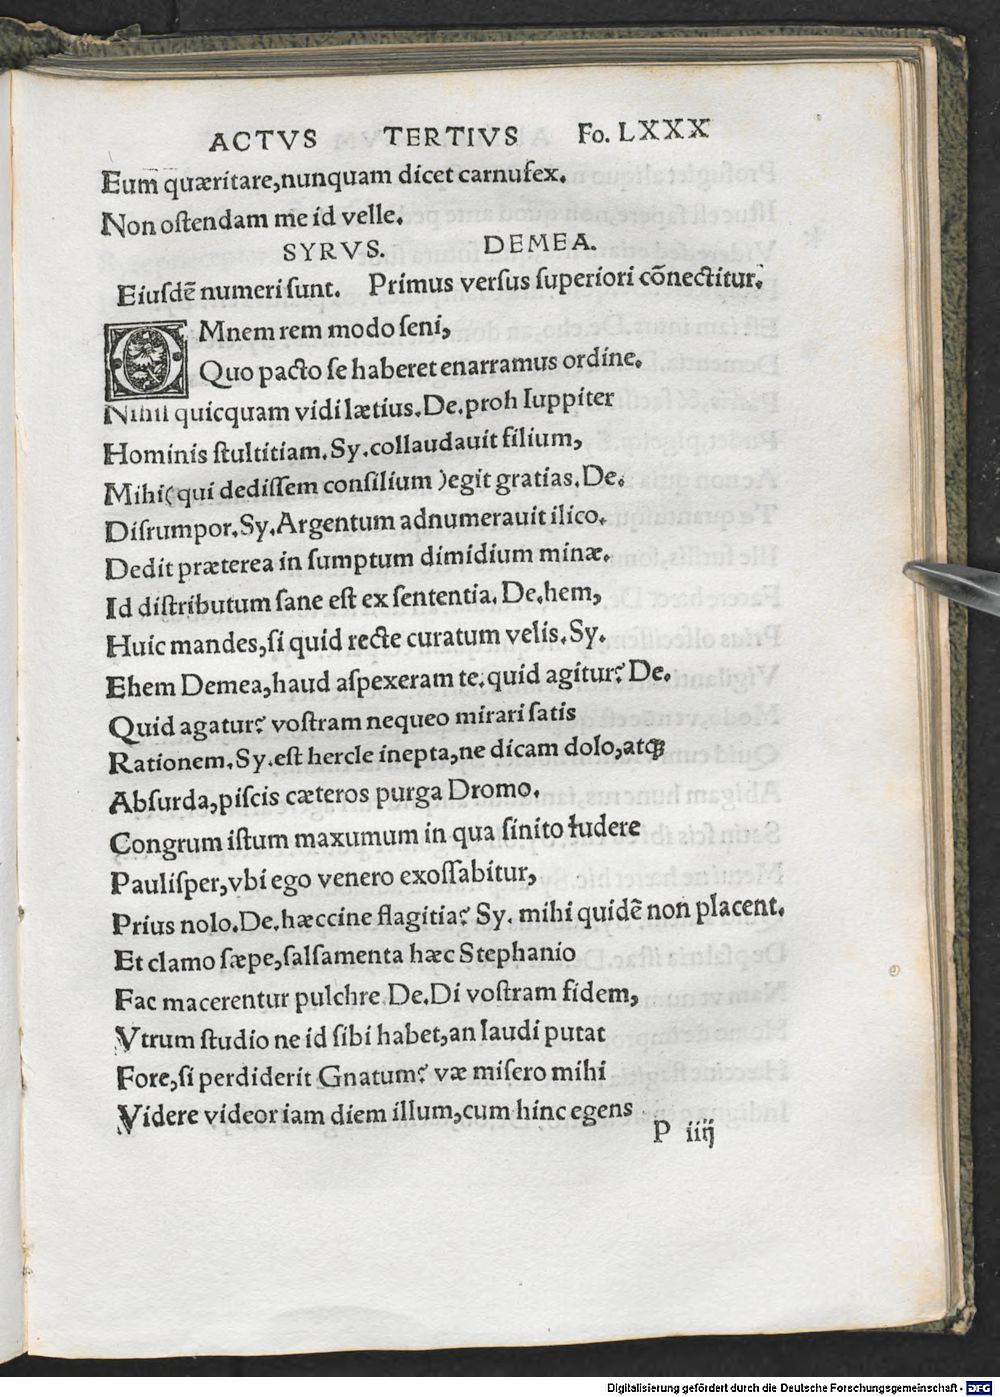 ACTVS TERTIVS Fo. LXXX
Eum quæritare,nunquam dicet carnufex.
Non oſtendam me id velle.
SYRVS. DEMEA.
Eiuſdē numeri ſunt. Primus verſus ſuperiori cōnectitur.
OMnem rem modo ſeni,
Quo pacto ſe haberet enarramus ordine.
Nihil quicquam vidi lætius.De.proh Iuppiter
Hominis ſtultitiam.Sy.collaudauit filium,
Mihi(qui dediſſem conſilium )egit gratias.De.
Diſrumpor.Sy.Argentum adnumerauit ilico.
Dedit præterea in ſumptum dimidium minæ.
Id diſtributum ſane eſt ex ſententia.De.hem,
Huic mandes,ſi quid recte curatum velis.Sy.
Ehem Demea,haud aſpexeram te.quid agitur? De.
Quid agatur? voſtram nequeo mirari ſatis
Rationem.Sy.eſt hercle inepta,ne dicam dolo,atqꝫ
Abſurda,piſcis cæteros purga Dromo.
Congrum iſtum maxumum in qua ſinito ludere
Pauliſper,vbi ego venero exoſſabitur,
Prius nolo.De.hæccine flagitia? Sy. mihi quidē non placent.
Et clamo ſæpe,ſalſamenta hæc Stephanio
Fac macerentur pulchre De.Di voſtram fidem,
Vtrum ſtudio ne id ſibi habet,an laudi putat
Fore,ſi perdiderit Gnatum? væ miſero mihi
Videre videor iam diem illum,cum hinc egens
P iiij
Digitalisierung gefördert durch die Deutsche Forschungsgemeinschaft - DFG